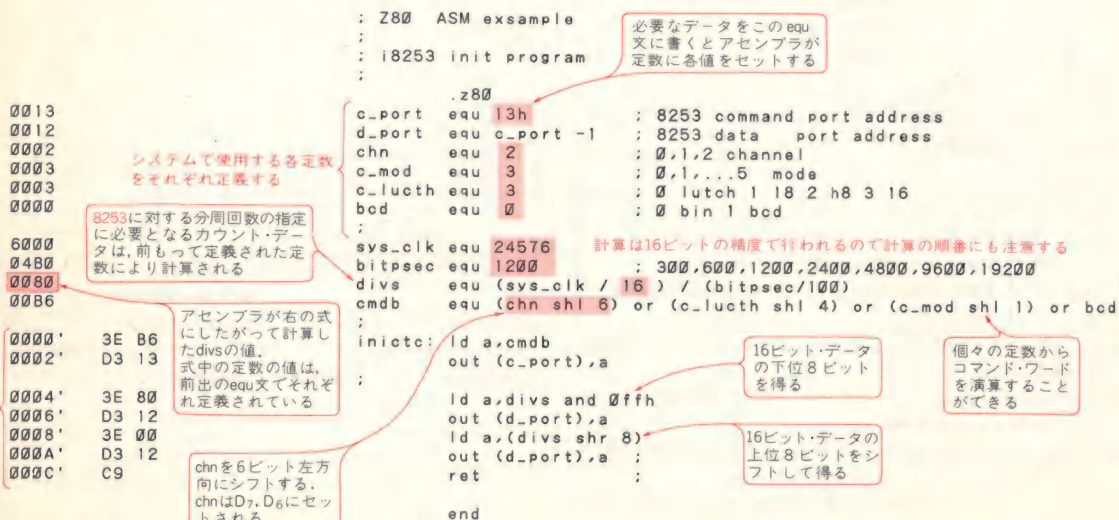 ; Z80 ASM exsample
;
; i8253 init program
;
.z80
必要なデータをこの equ
文に書くとアセンブラが
定数に各値をセットする
0013 c_port equ 13h ; 8253 command port address
0012 d_port equ c_port -1 ; 8253 data port address
0002 chn equ 2 ; 0,1,2 channel
0003 c_mod equ 3 ; 0,1,...5 mode
0003 c_lucth equ 3 ; 0 lutch 1 l8 2 h8 3 16
0000 bcd equ 0 ; 0 bin 1 bcd
;
システムで使用する各定数
をそれぞれ定義する
8253に対する分周回数の指定
に必要となるカウント・デー
タは,前もって定義された定
数により計算される
6000 sys_clk equ 24576 計算は16ビットの精度で行われるので計算の順番にも注意する
04B0 bitpsec equ 1200 ; 300,600,1200,2400,4800,9600,19200
0080 divs equ (sys_clk / 16 ) / (bitpsec/100)
00B6 cmdb equ (chn shl 6) or (c_lucth shl 4) or (c_mod shl 1) or bcd
;
アセンブラが右の式
にしたがって計算し
たdivsの値.
式中の定数の値は,
前出のequ文でそれぞ
れ定義されている
0000' 3E B6 inictc: ld a,cmdb
0002' D3 13 out (c_port),a
;
0004' 3E 80 ld a,divs and 0ffh
0006' D3 12 out (d_port),a
0008' 3E 00 ld a,(divs shr 8)
000A' D3 12 out (d_port),a ;
000C' C9 ret ;
end
16ビット・データ
の下位8ビット
を得る
個々の定数から
コマンド・ワード
を演算すること
ができる
16ビット・データの
上位8ビットをシ
フトして得る
chnを6ビット左方
向にシフトする.
chnはD7, D6にセッ
トされる